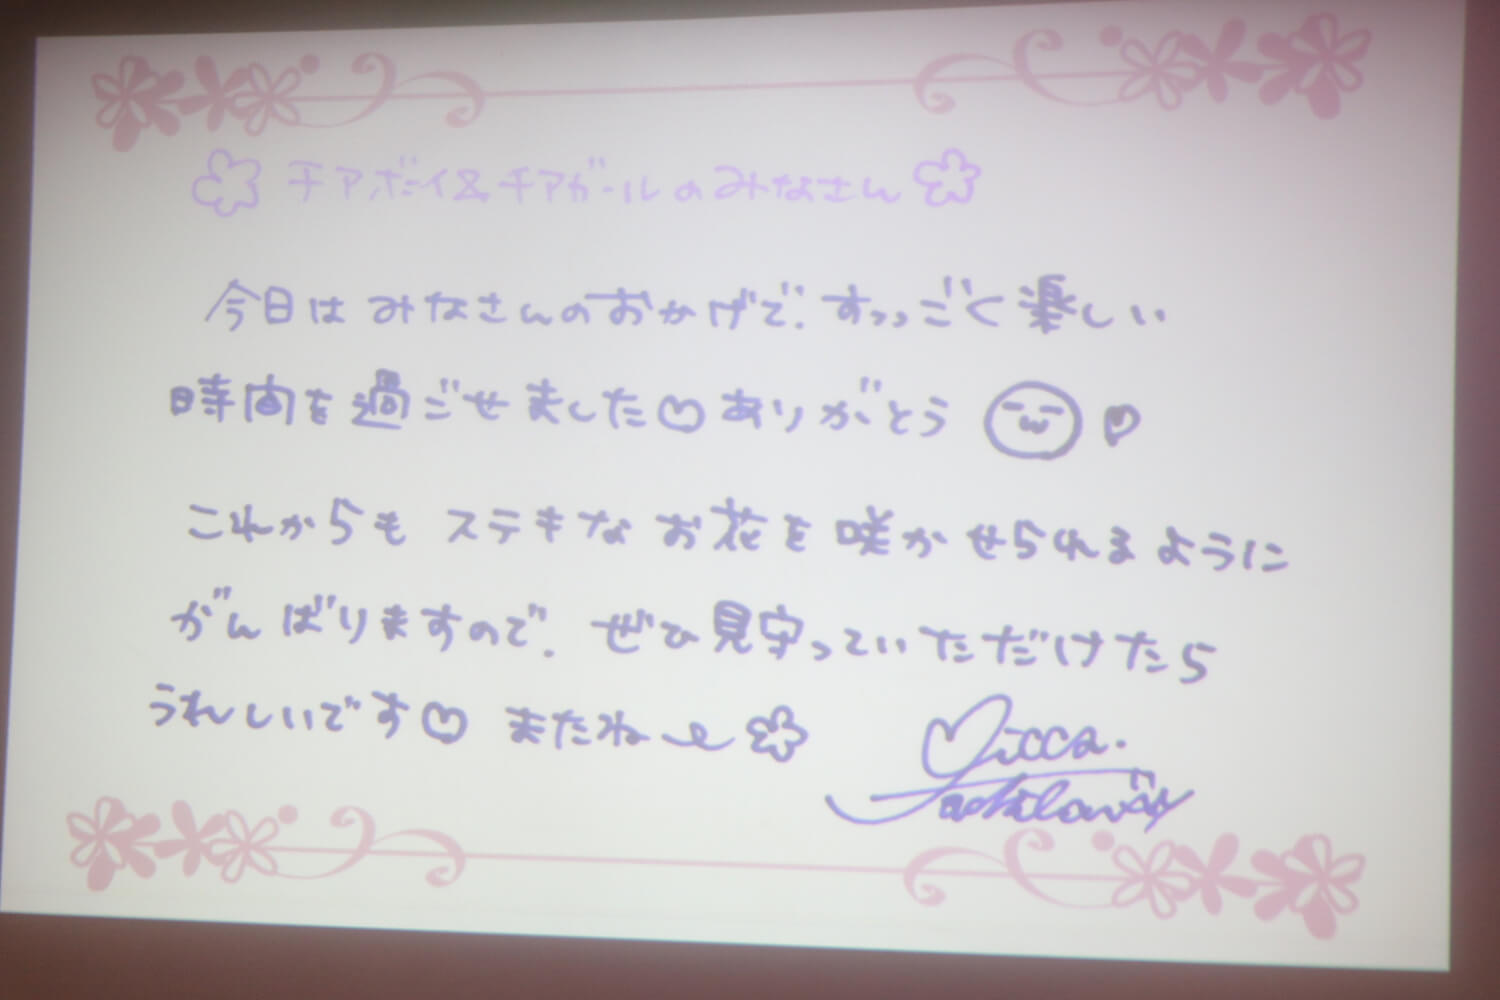 チアボーイ&チアガールのみなさん
今日はみなさんのおかげで、すっっごく楽しい
時間を過ごせました♡ありがとう
これからもステキなお花を咲かせられるように
がんばりますので、ぜひ見守っていただけたら
うれしいです♡またね〜
Micca.
Tachikawa